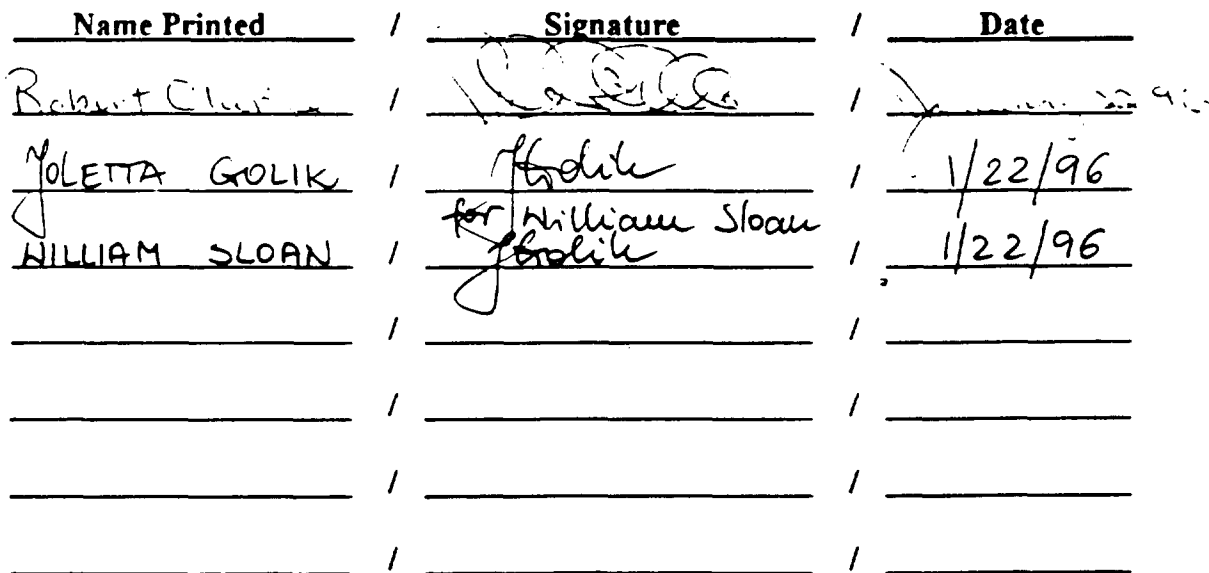 Name Printed / Signature / Date
Robert / / 22 96
JOLETTA GOLIK / JGolik / 1/22/96
for William Sloan
WILLIAM SLOAN / JGolik / 1/22/96
/ /
/ /
/ /
/ /